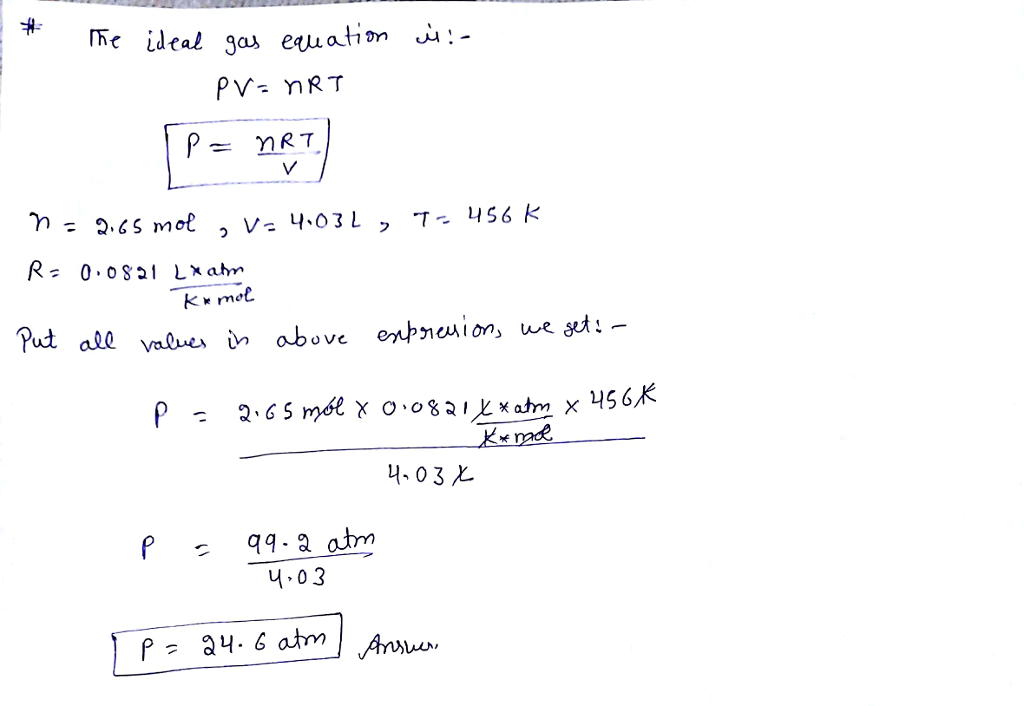 # The ideal gas equation is:-
PV = nRT
P = nRT
V
n = 2.65 mol , V = 4.03 L , T = 456 K
R = 0.0821 L*atm
K*mol
Put all values in above expression, we get:-
P = 2.65 mol x 0.0821 L*atm x 456K
K*mol
4.03 L
P = 99.2 atm
4.03
P = 24.6 atm Answer